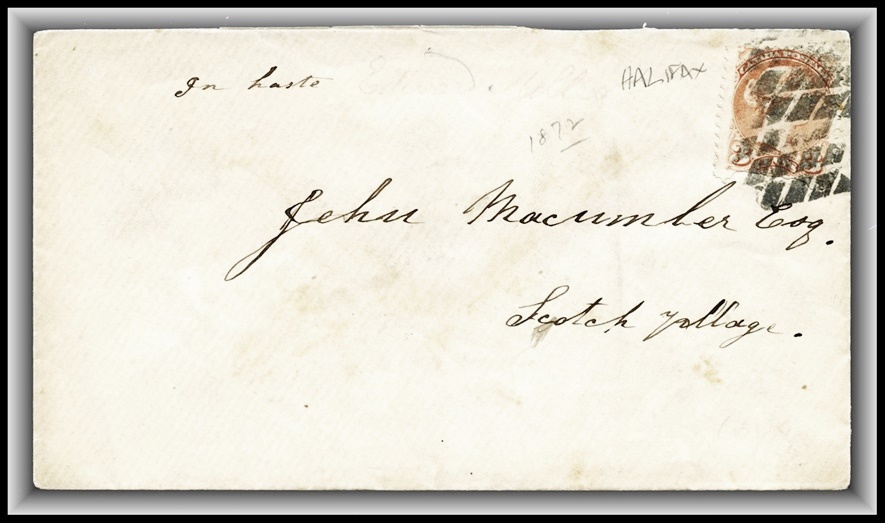 In haste
HALIFAX
1872
John Macumber Esq.
Scotch Village.
3 3